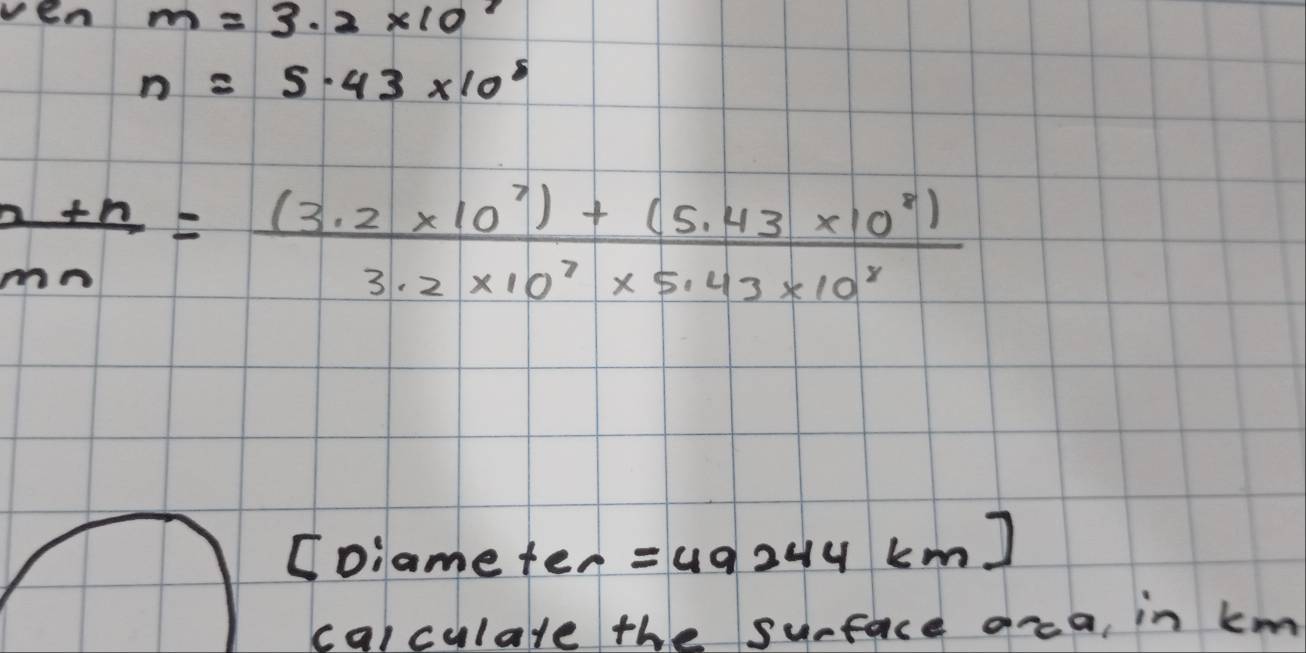 m = 3.2 × 10⁷
n = 5.43 × 10⁸
+n = (3.2 × 10⁷) + (5.43 × 10⁸)
mn 3.2 × 10⁷ × 5.43 × 10⁸
[Diameter = 49244 km]
calculate the surface area, in km